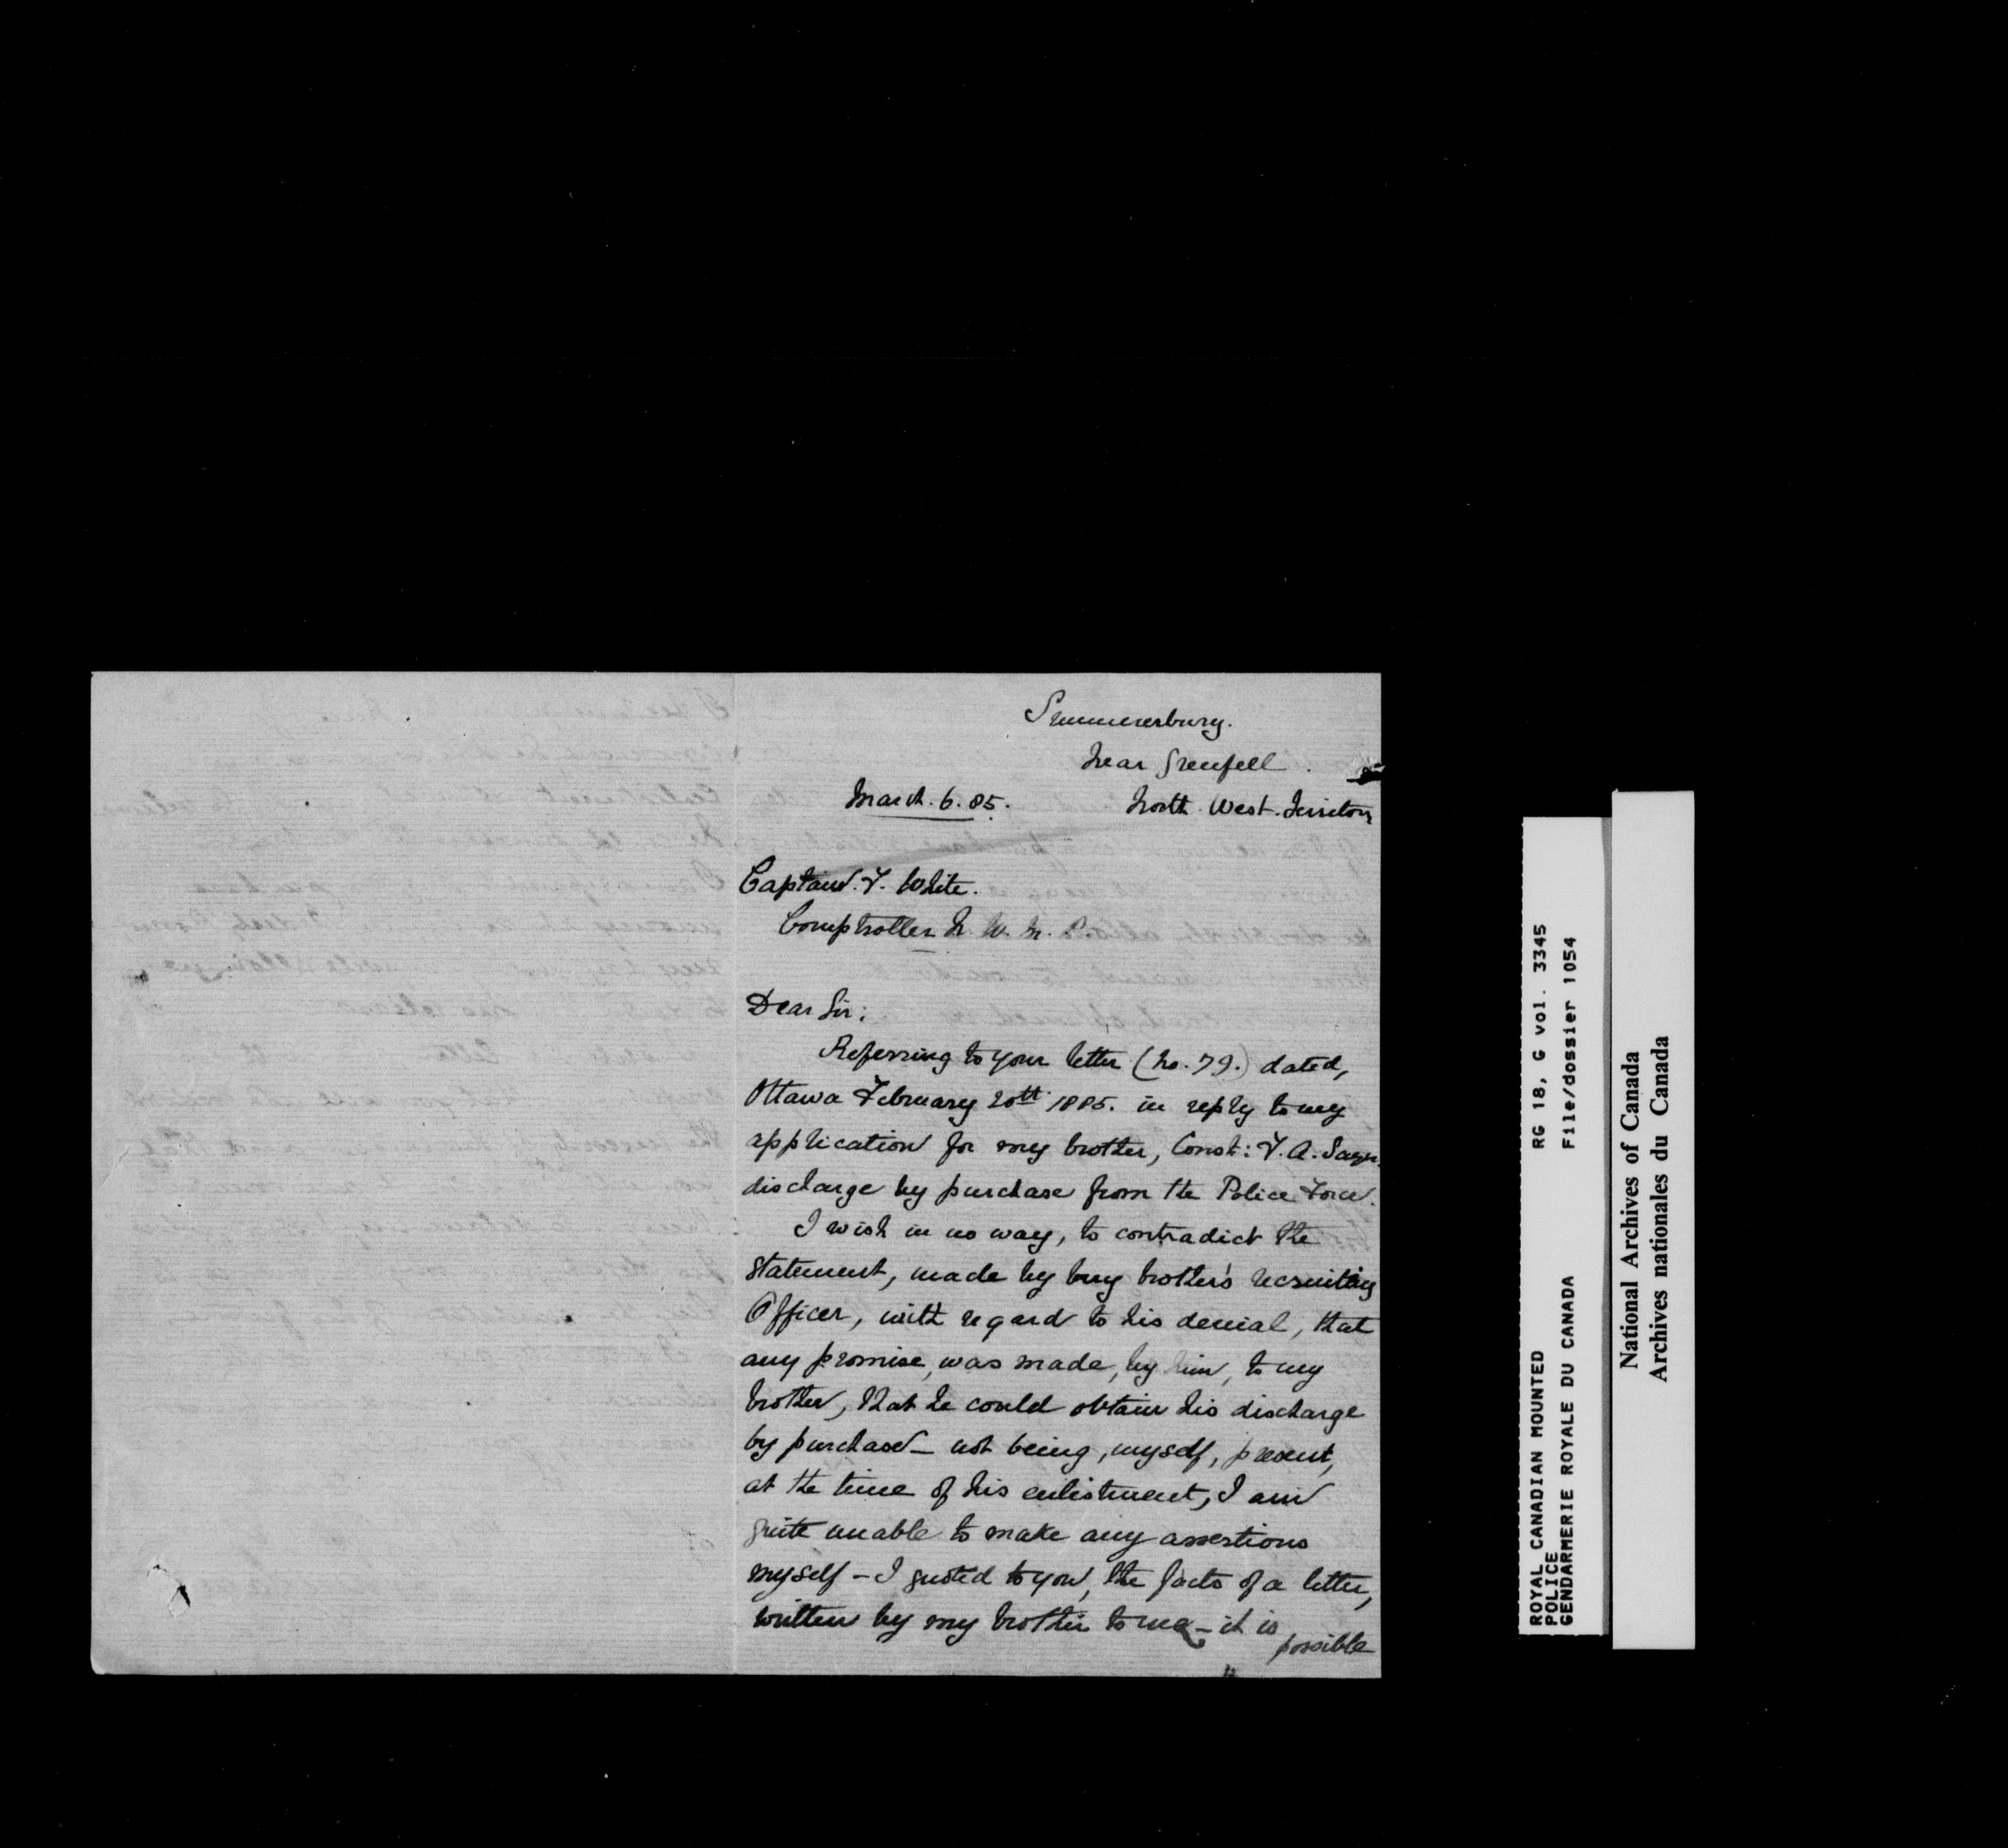 Summerbury.
Near Grenfell.
March. 6. 85.
North. West. Territory
Captain. F. White.
Comptroller N. W. M. P.
Dear Sir:
Referring to your letter (No. 79.) dated,
Ottawa February 20th 1885. in reply to my
application for my brother, Const: F. A.
discharge by purchase from the Police Force.
I wish in no way, to contradict the
statement, made by my brother's recruiting
Officer, with regard to his denial, that
any promise, was made, by him, to my
brother, that he could obtain his discharge
by purchase – not being, myself, present,
at the time of his enlistment, I am
quite unable to make any assertions
myself – I quoted to you, the facts of a letter,
written by my brother to me – it is
possible
ROYAL CANADIAN MOUNTED
POLICE
GENDARMERIE ROYALE DU CANADA
RG 18, G vol. 3345
File/dossier 1054
National Archives of Canada
Archives nationales du Canada